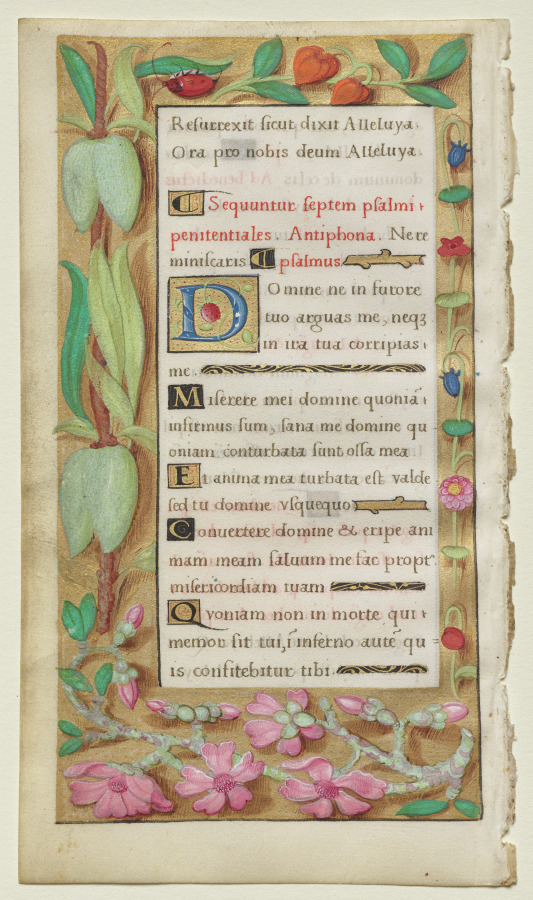 Resurrexit sicut dixit Alleluya.
Ora pro nobis deum Alleluya
Sequuntur septem psalmi
penitentiales. Antiphona. Ne re
miniscaris psalmus.
Domine ne in furore
tuo arguas me, neqz
in ira tua corripias
me.
Miserere mei domine quoniã
infirmus sum, sana me domine qu
oniam conturbata sunt ossa mea
Et anima mea turbata est valde
sed tu domine vsquequo
Conuertere domine & eripe ani
mam meam saluum me fac propt
misericordiam tuam
Quoniam non in morte qui
memor sit tui, ĩ inferno autẽ qu
is confitebitur tibi